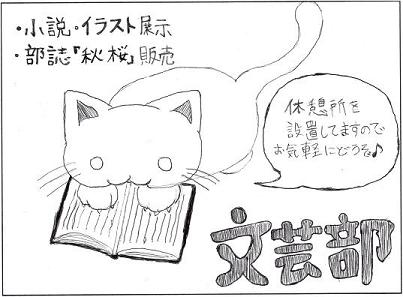 ・小説・イラスト展示
・部誌『秋桜』販売
休憩所を
設置してますので
お気軽にどうぞ♪
文芸部